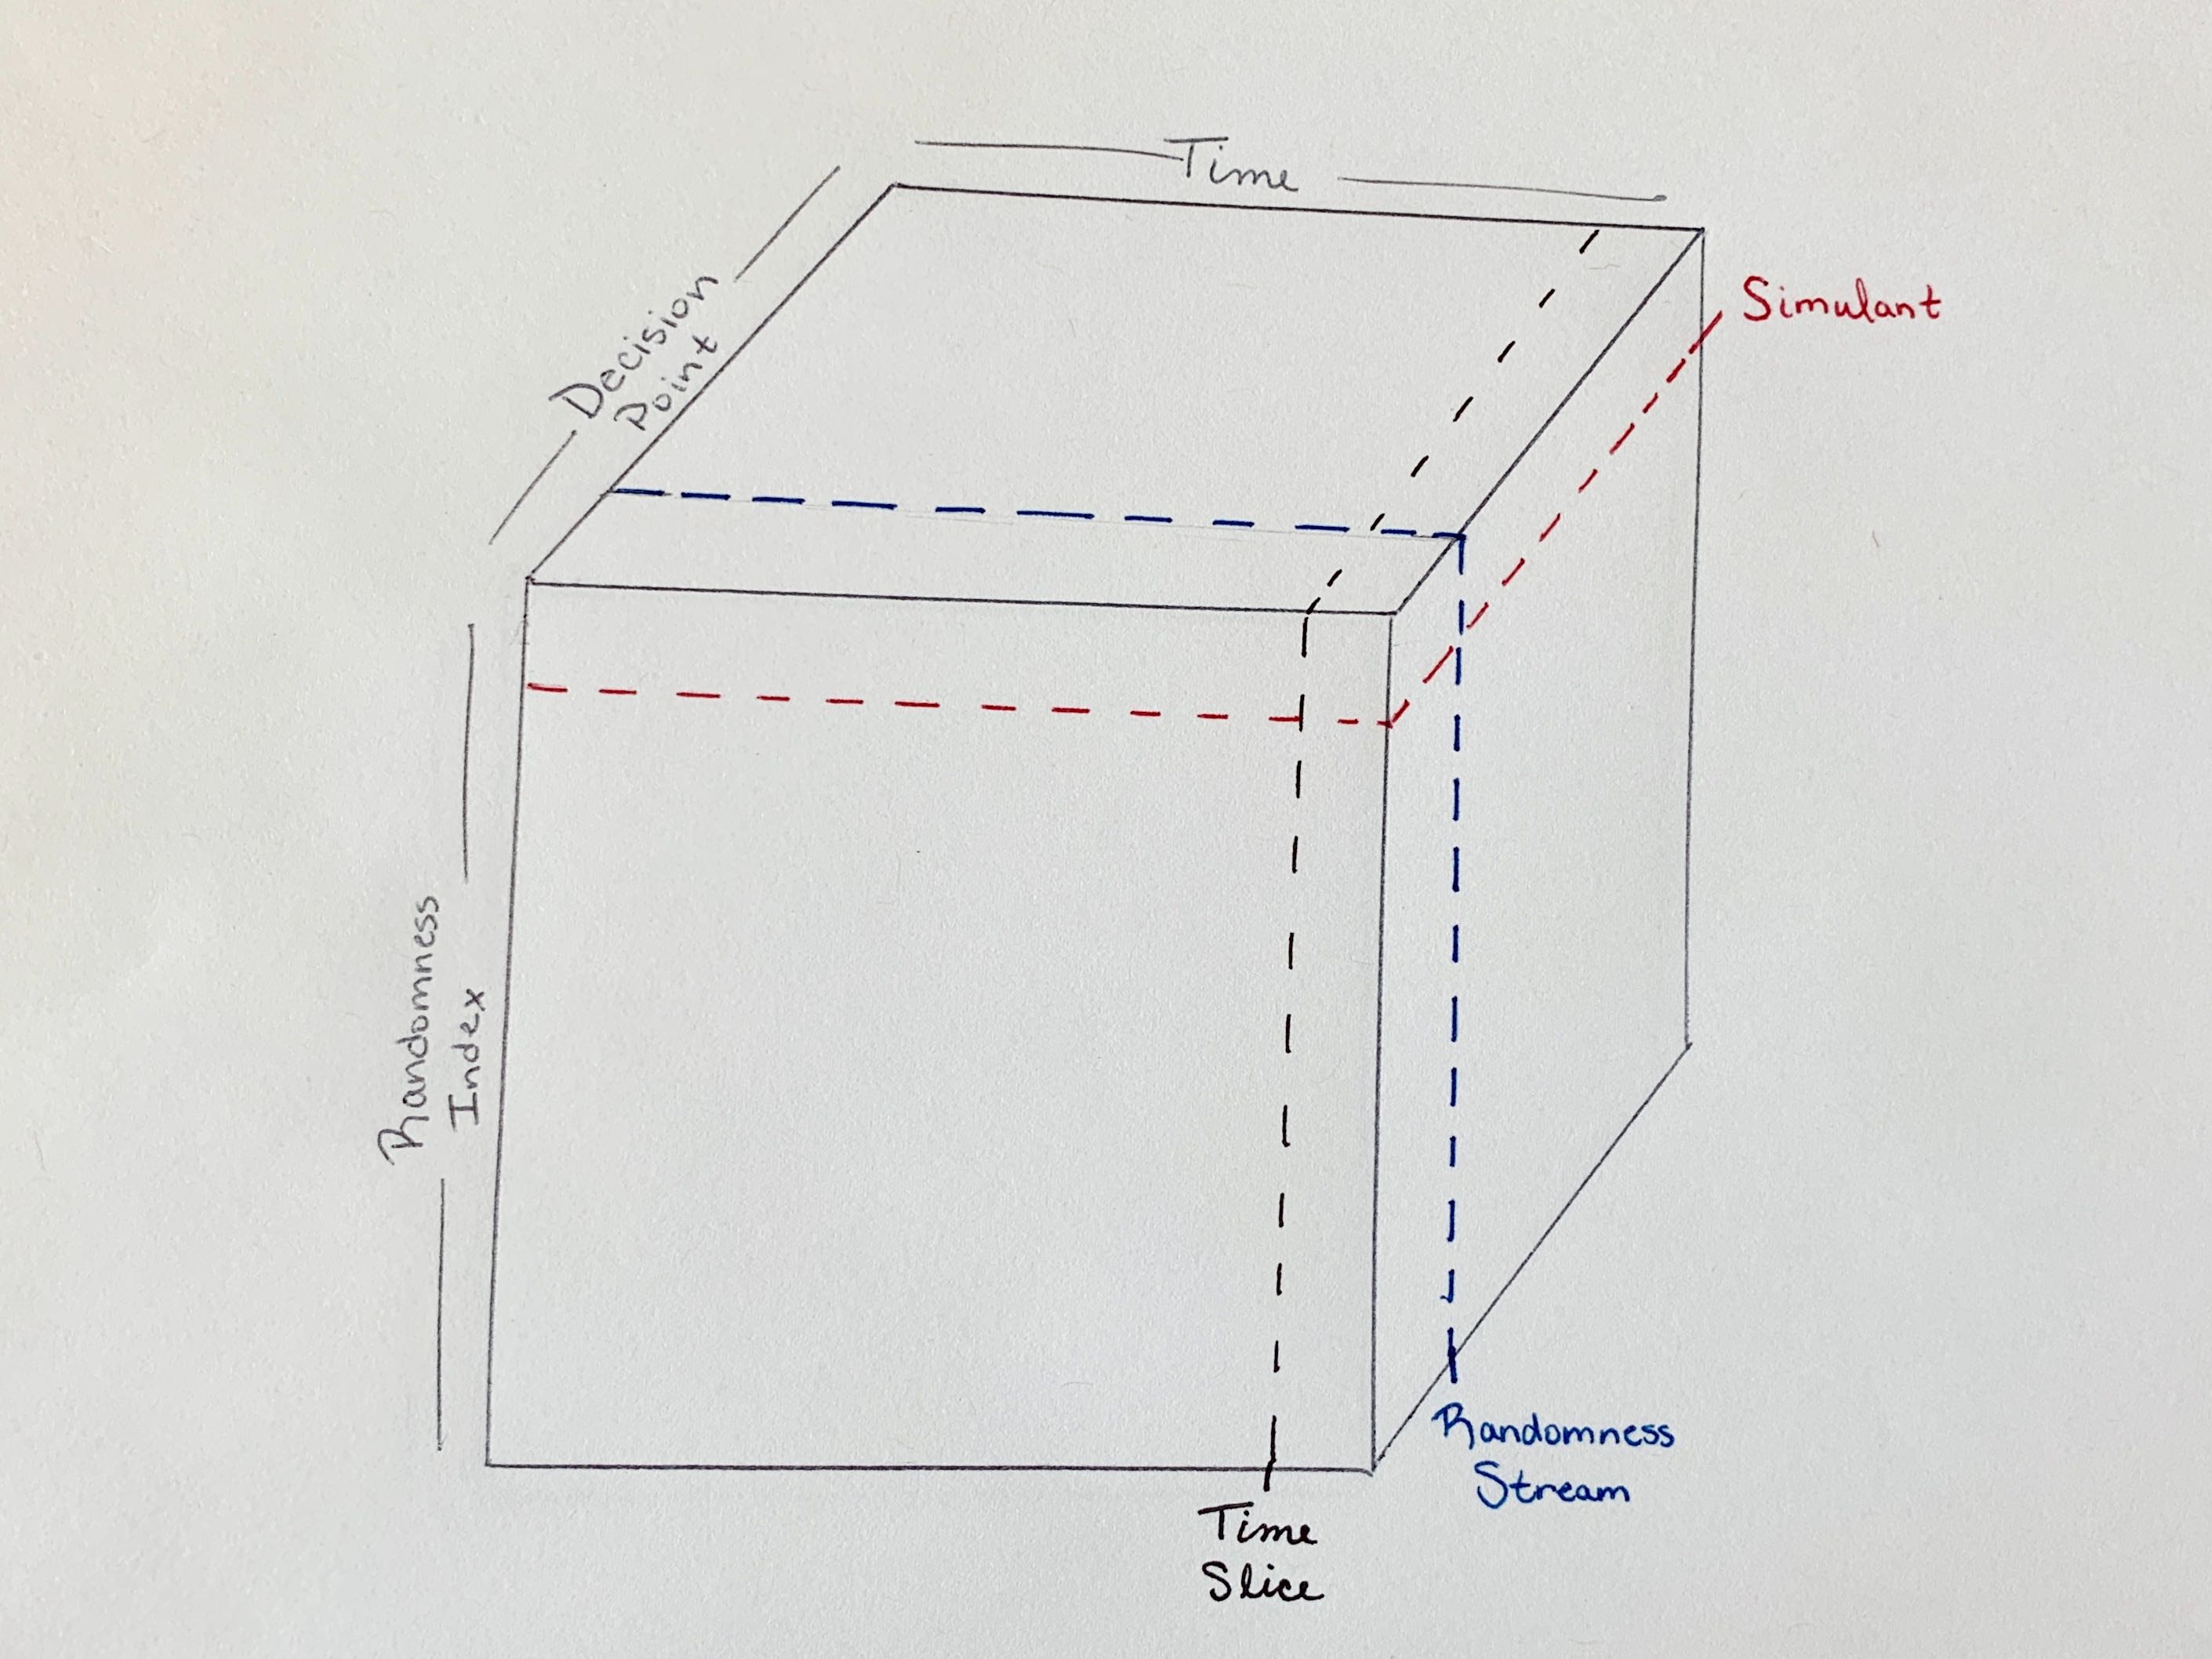 Time
Decision
Point
Simulant
Randomness
Index
Randomness
Stream
Time
Slice